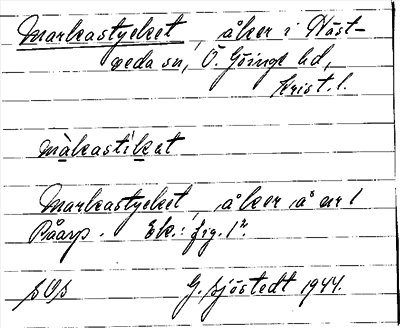 Markastycket, åker i Häst-
veda sn, Ö. Göinge hd,
Krist. l.
màkastìkat
Markastycket, åker å nr 1
Råarp. Ek.: fig. 1².
G. Sjöstedt 1944.